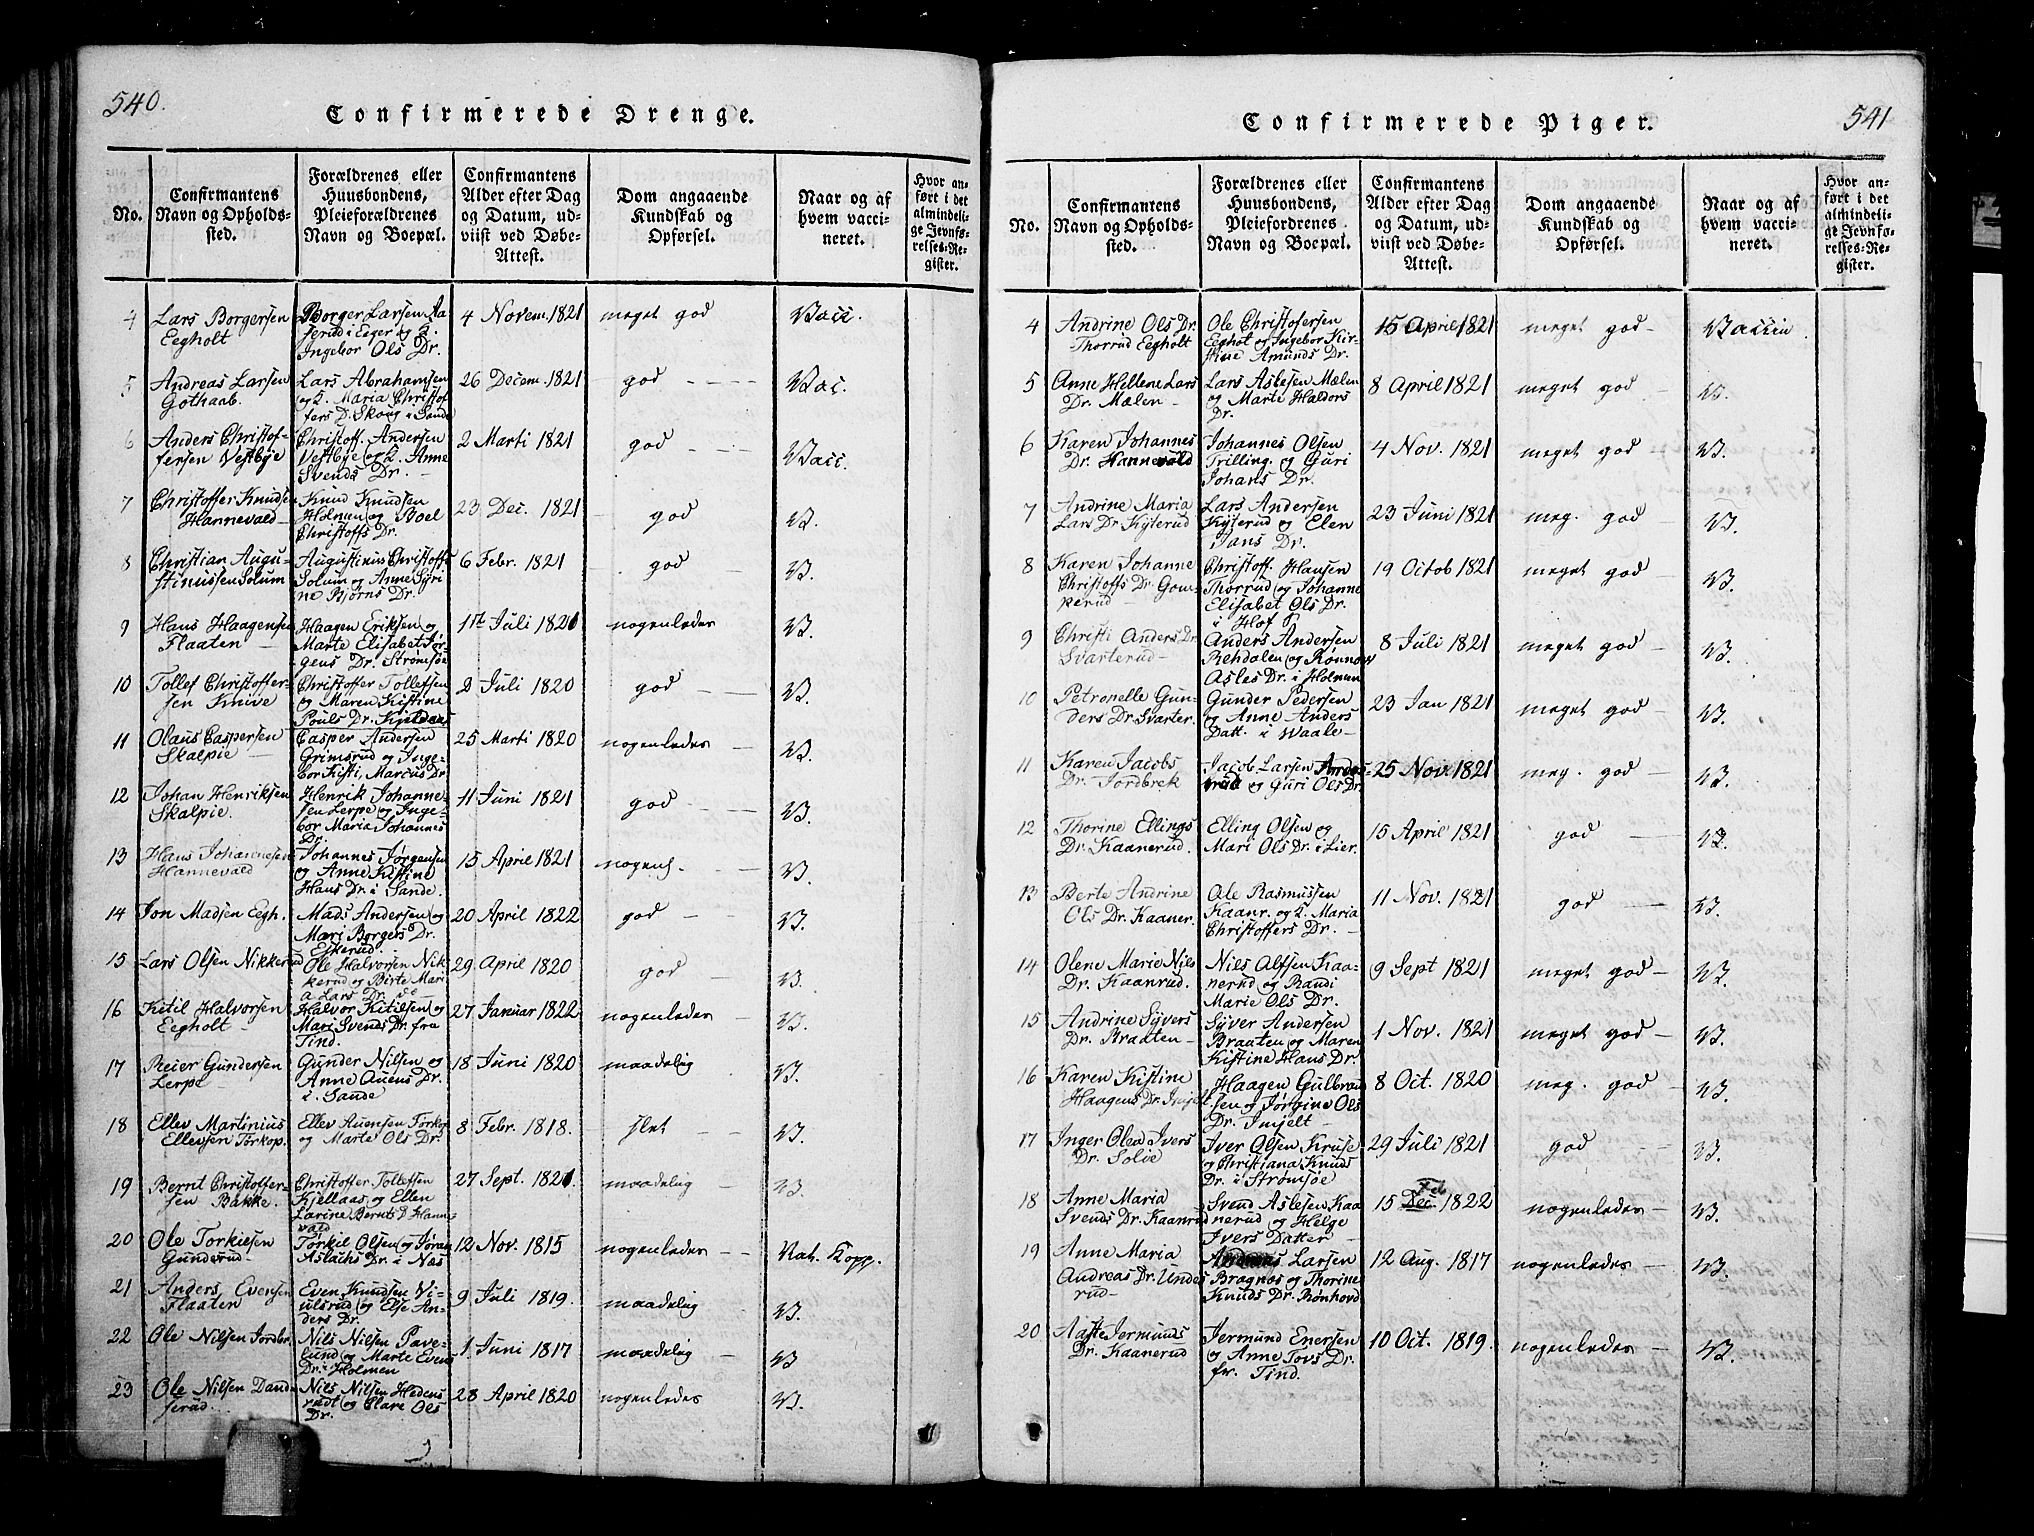 540.
Confirmerede Drenge.
No.
Confirmantens
Navn og Opholds-
sted.
Forældrenes eller
Huusbondens,
Pleieforældrenes
Navn og Boepæl.
Confirmantens
Alder efter Dag
og Datum, ud-
viist ved Døbe-
Attest.
Dom angaaende
Kundskab og
Opførsel.
Naar og af
hvem vacci-
neret.
Hvor an-
ført i det
almindeli-
ge Jevnfø-
relses-Re-
gister.
4 Lars Borgersen Borger Larsen Aa 4 Novem. 1821 meget god Vacc.
Eegholt serud i Eeger og K.
Ingebor Ols Dr.
5 Andreas Larsen Lars Abrahamsen 26 Decem. 1821 god Vac.
Gothaab. og K. Maria Christof
fers D. Skoug i Sande
6 Anders Christof- Christoff. Andersen 2 Marti 1821 god Vacc.
fersen Vestbye Vestbye og K. Anne
Svends Dr.
7 Christoffer Knudsen Knud Knudsen 23 Dec. 1821 god V.
Hannevald Holmen og Boel
Christoffs Dr.
8 Christian Augu- Augustinus Christoffs 6 Febr. 1821 god V.
stinussen Solum Solum og Anne Syri
ne Bjørns Dr.
9 Hans Haagensen Haagen Eriksen og 17 Juli 1821 nogenledes V.
Flaaten Marte Elisabet Jør-
gens Dr. Strømsøe
10 Tollef Christoffer- Christoffer Tollefsen 2 Juli 1820 god V.
sen Knive og Maren Kistine
Pouls Dr. Kjeldaas
11 Olaus Caspersen Casper Andersen 25 Marti 1820 nogenledes V.
Skalpie Grimsrud og Inge-
bor Kisti, Marcus Dr.
12 Johan Henriksen Henrik Johanne- 11 Juni 1821 god V.
Skalpie. sen Lerpe og Inge-
bor Maria Johannes
Dr.
13 Hans Johannesen Johannes Jørgensen 15 April 1821 nogenl. V.
Hannevald og Anne Kistine
Hans Dr. i Sande.
14 Jon Madsen Eegh. Mads Andersen og 20 April 1822 god V.
Mari Borgers Dr.
Eskerud.
15 Lars Olsen Nikkerud Ole Halvorsen Nik- 29 April 1820 god V.
kerud og Birte Mari
a Lars Dr. do
16 Kitil Halvorsen Halvor Kitilsen og 27 Januar 1822 nogenledes V.
Eegholt Mari Svends Dr. fra
Tind.
17 Reier Gundersen Gunder Nilsen og 18 Juni 1820 maadelig V.
Lerpe Anne Auens Dr.
i Sande
18 Ellev Martinius Ellev Auensen Torkop 8 Febr. 1818. slet V.
Ellevsen Torkop. og Marte Ols Dr.
19 Bernt Christoffer- Christoffer Tollefsen 27 Sept. 1821. maadelig V.
sen Bakke. Kjellaas og Ellen
Larine Bernts D. Hanne
vald
20 Ole Torkielsen Torkil Olsen og Jøran 12 Nov. 1815 nogenledes Nat. Kopp.
Gunderud Aslachs Dr. i Næs
21 Anders Evensen Even Knudsen Vi- 9 Juli 1819. maadelig V.
Flaaten ulsrud og Else An-
ders Dr.
22 Ole Nilsen Jordbr. Nils Nilsen Pave- 1. Juni 1817 maadelig V
lund og Marte Evens
Dr. i Holmen
23 Ole Nilsen Dand- Nils Nilsen Hedens 28 April 1820 nogenledes V.
serud. rudt og Clare Ols
Dr.
541
Confirmerede Piger.
No.
Confirmantens
Navn og Opholds-
sted.
Forældrenes eller
Huusbondens,
Pleiefordrenes
Navn og Boepæl.
Confirmantens
Alder efter Dag
og Datum, ud-
viist ved Døbe-
Attest.
Dom angaaende
Kundskab og
Opførsel.
Naar og af
hvem vacci-
neret.
Hvor an-
ført i det
almindeli-
ge Jevnfø-
relses-Re-
gister.
4 Andrine Ols Dr. Ole Christofersen 15 April 1821 meget god Vaccin
Thorrud Eegholt Eeghot og Ingebor Kir-
stine Amunds Dr.
5 Anne Hellene Lars Lars Aslesen Mælen 8 April 1821 meget god V.
Dr. Mælen og Marte Haldors
Dr.
6 Karen Johannes Johannes Olsen 4 Nov. 1821 meget god V.
Dr. Hannevald Trilling. og Guri
Johans Dr.
7 Andrine Maria Lars Andersen 23 Juni 1821 meg. god V.
Lars Dr. Kyterud Kyterud og Elen
Jans Dr.
8 Karen Johanne Christoff. Hansen 19 Octob 1821 meget god V.
Christoffs Dr. Gom- Thorrud og Johanne
kerud Elisabet Ols Dr.
i Hof P.
9 Christi Anders Dr. Anders Andersen 8 Juli 1821 meget god V.
Svarterud Rehdalen og Rønnow
Asles Dr. i Holmen
10 Petronelle Gun- Gunder Pedersen 23 Jan 1821 meget god V.
ders Dr. Svarter. og Anne Anders
Datt. i Waale
11 Karen Jacobs Jacob Larsen 25 Nov. 1821 meg. god V.
Dr. Jordbrek rud og Guri Ols Dr.
12 Thorine Ellings Elling Olsen og 15 April 1821 god V.
Dr. Kaanerud. Mari Ols Dr. i Lier.
13 Berte Andrine Ole Rasmussen 11 Nov. 1821 god V.
Ols Dr. Kaaner. Kaanr. og K. Maria
Christoffers Dr.
14 Olene Marie Nils Nils Alfsen Kaa- 9 Sept 1821 meget god V.
Dr. Kaanrud. nerud og Randi
Marie Ols Dr.
15 Andrine Syvers Syver Andersen 1 Nov. 1821 meget god V.
Dr. Braaten Braaten og Maren
Kistine Hans Dr.
16 Karen Kistine Haagen Gulbrand 8 Oct. 1820 meg. god V.
Haagens Dr. Imjelt sen og Jørgine Ols
Dr. Imjelt
17 Inger Olea Ivers Iver Olsen Kruse 29 Juli 1821 god V.
Dr. Solve og Christiana Knuds
Dr. i Strømsøe
18 Anne Maria Svend Aslesen Kaa 15 Dec Feb 1822 nogenledes V.
Svends Dr. Kaanrud nerud og Helge
Ivers Datter
19 Anne Maria Larsen 12 Aug. 1817 nogenledes V.
Andreas Dr. Undes Bragnæs og Thorine
rud Knuds Dr. Rønhovd
20 Aaste Jermunds Jermund Enersen 10 Oct. 1819. nogenledes V.
Dr. Kaanerud og Anne Tovs Dr.
fr. Tind.